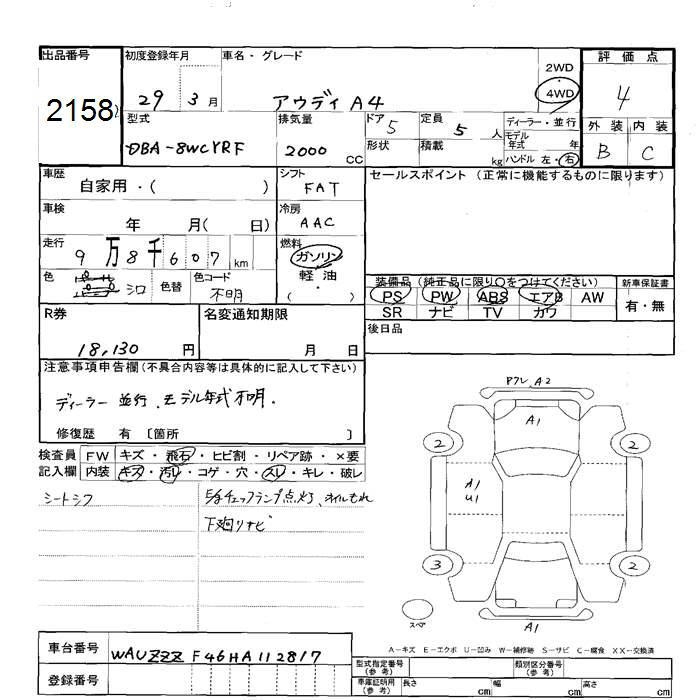 出品番号 初度登録年月 車名・グレード 評価点
2158 29 3月 アウディ A4 2WD 4WD 4
型式 排気量 ドア 5 定員 5人 ディーラー・並行 外装 内装
DBA-8WCYRF 2000CC 形状 積載 kg モデル年式 年 ハンドル 左・右 B C
車歴 シフト セールスポイント(正常に機能するものに限ります)
自家用・( ) FAT
車検 年 月( 日) 冷房 AAC
走行 9万8千607km 燃料 ガソリン
軽・油
色 シロ 色替 色コード 不明 ( )
装備品(純正品に限り○をつけてください) 新車保証書
PS PW ABS エアB AW 有・無
SR ナビ TV カワ
R券 名変通知期限 後日品
18,130円 月 日
注意事項申告欄(不具合内容等は具体的に記入して下さい)
ディーラー 並行、モデル年式不明.
修復歴 有 〔箇所 〕
検査員 FW キズ・飛石・ヒビ割・リペア跡・×要
記入欄 内装 キズ・汚レ・コゲ・穴・スレ・キレ・破レ
シートシワ チェックランプ点灯、オイルもれ
下廻りサビ
アフレ、A2
A1
2 2
A1
U1
3 2
スペア
A1
A-キズ E-エクボ U-凹み W-補修跡 S-サビ C-腐食 XX-交換済
車台番号 WAUZZZF46HA112817
登録番号
型式指定番号(参考) 類別区分番号(参考)
車庫証明用(参考) 長さ cm 幅 cm 高さ cm